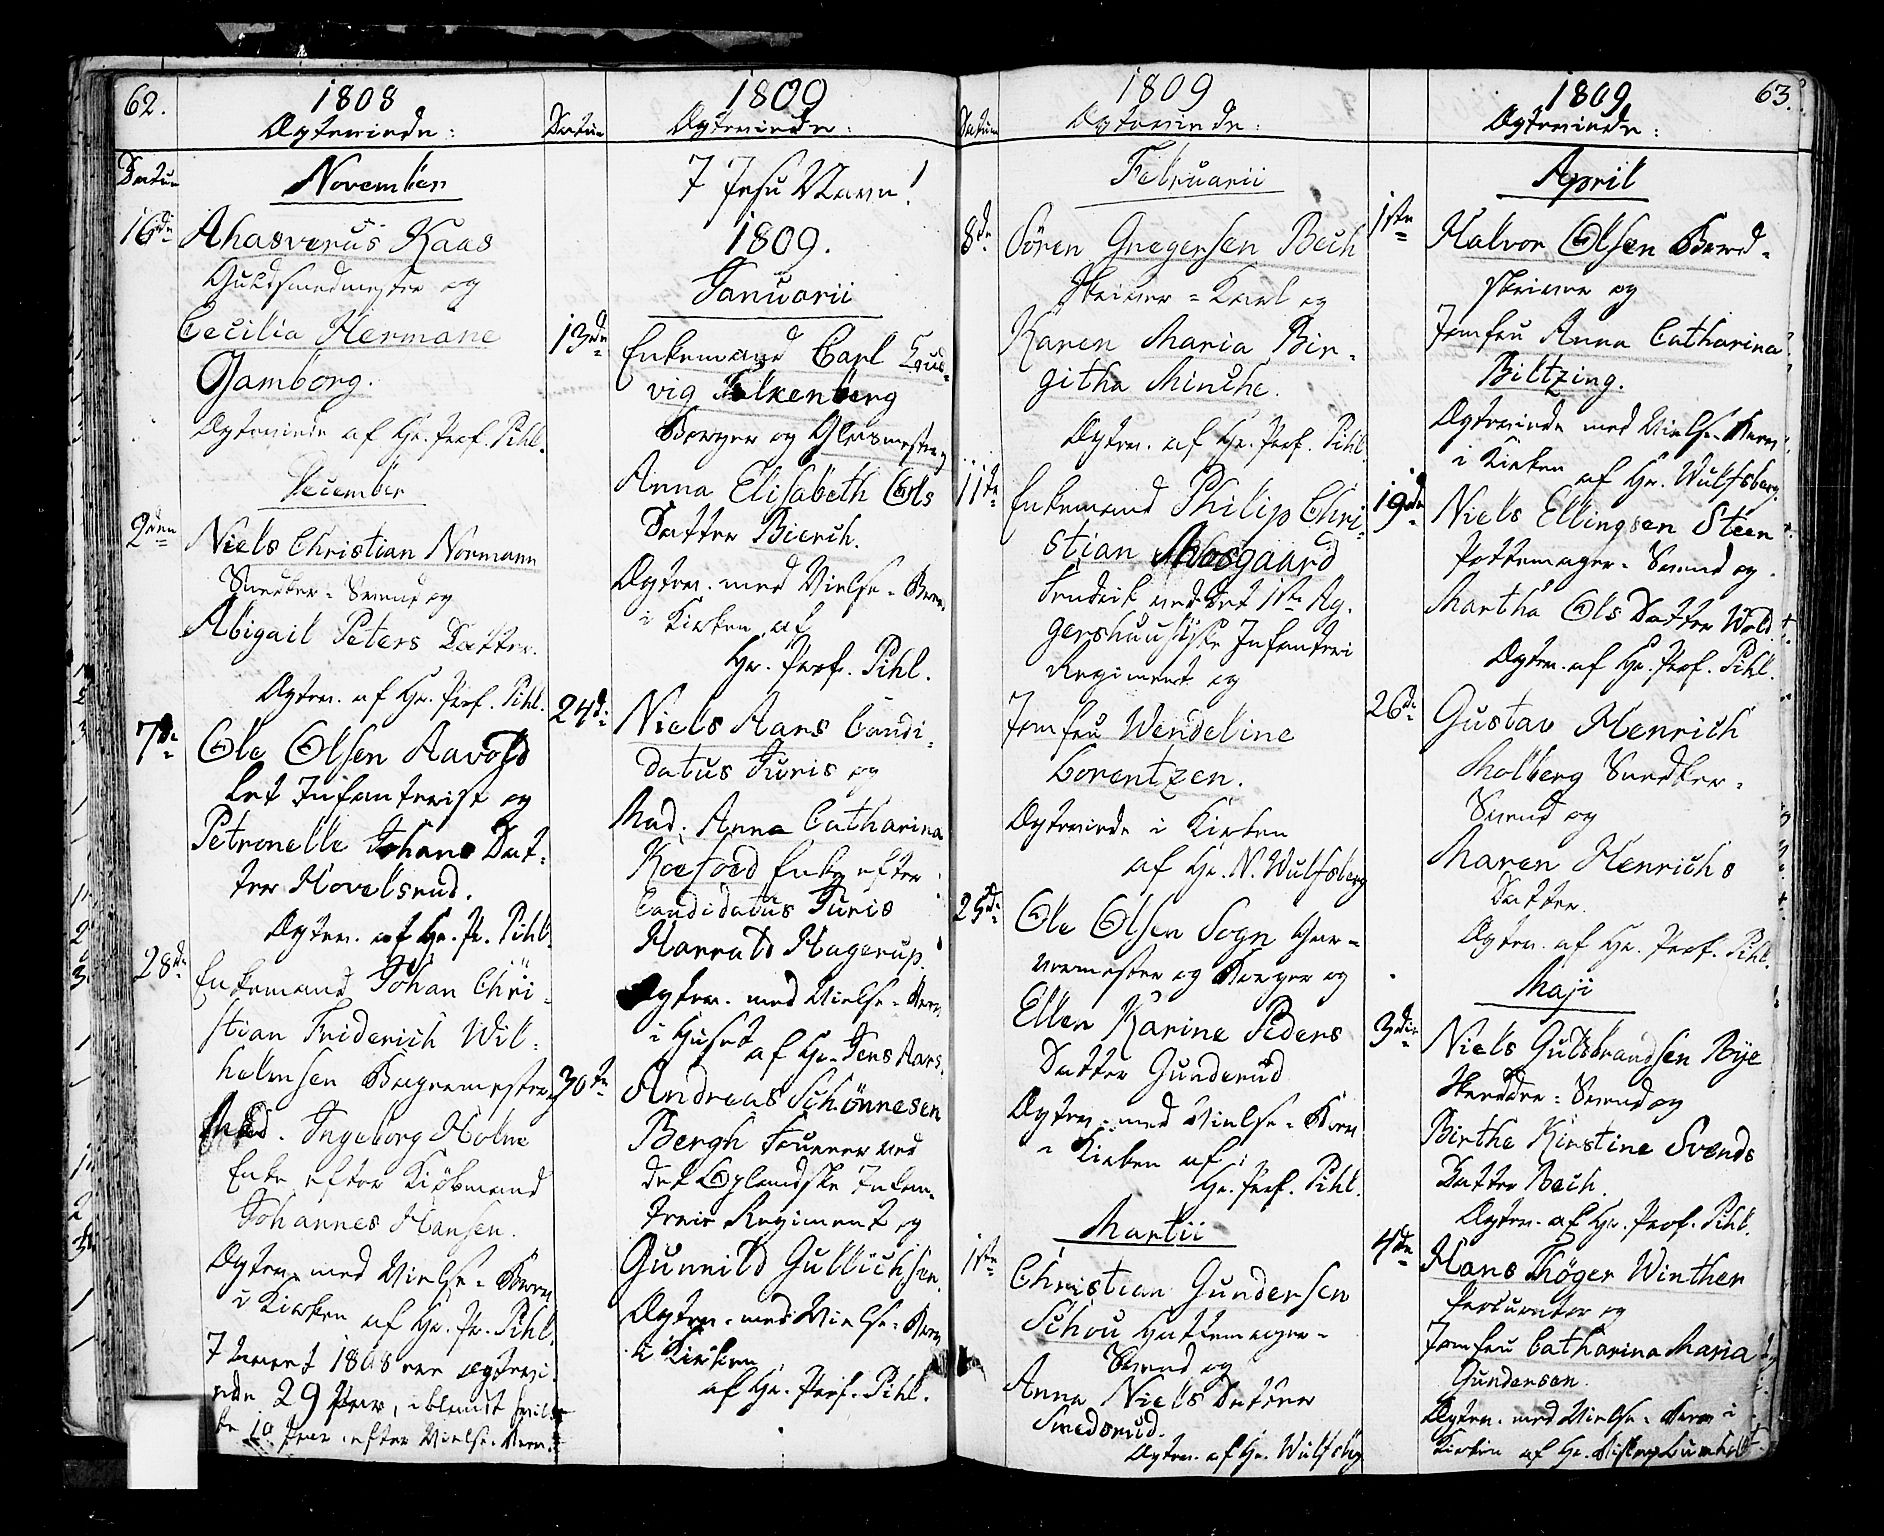 62.
1808
Ægteviede:
Datum
November
16de
Ahasverus Kaas
Guldsmedmester og
Cecilia Hermane
Gamborg.
Ægteviede af Hr. Prof. Pihl.
December
2den
Niels Christian Normann
Snedker-Svend og
Abigail Peters Datter.
Ægtev. af Hr. Prof. Pihl.
7de
Ole Olsen Aavold
Let Infanterist og
Petronelle Johans Dat-
ter Hovelsrud.
Ægtev. af Hr. Pr. Pihl.
28de
Enkemand Johan Chri-
stian Friderich Wil-
helmsen Bogtrmester
Mad. Ingeborg Holm
Enke efter Kiøbmand
Johannes Hansen.
Ægtev. med Vielse-Brev
i Kirken af Hr. Pr. Pihl.
I Aaret 1808 ere ægtevi-
ede 29 Par, iblandt hvil-
ke 10 Par efter Vielse-Brev.
Datum
1809
Ægteviede:
I Jesu Navn!
1809.
Januarii
13de
Enkemand Carl Lud-
vig Falkenberg
Borger og Glasmester
Anna Elisabeth Ols
Datter Bierch.
Ægtev. med Vielse-Brev
i Kirken af
Hr. Prof. Pihl.
24de
Niels Aars Candi-
datus Juris og
Mad. Anna Catharina
Koefoed Enke efter
Candidatus Juris
Harrald Hagerup.
Ægtev. med Vielse-Brev
i Huset
af Hr. Jens Aars.
30te
Andreas Schønnesen
Bergh Fourer ved
det Oplandske Infan-
terie Regiment og
Gunnild Gullichsen
Ægtev. med Vielse-Brev
i Kirken
af Hr. Prof. Pihl.
Datum
1809
Ægteviede:
Februarii
8de
Sören Gregersen Bech
Skriver-Karl og
Karen Maria Bir-
githa Minche.
Ægtev. af Hr. Prof. Pihl.
11te
Enkemand Philip Chri-
stian Mosgaard
Fendrik ved det 1ste Ag-
gershuusiske Infanteri
Regiment og
Jomfru Wendeline
Lorentzen.
Ægteviede i Kirken
af Hr. N. Wulfsberg
25de
Ole Olsen Sogn Gar-
vermester og Borger og
Ellen Karine Peders
Datter Gunderud
Ægtev. med Vielse-Brev
i Kirken af
Hr. Prof. Pihl.
Martii
1ste
Christian Gundersen
Schou Hattemager-
Svend og
Anna Niels Datter
Smedsrud.
Ægtev. af Hr. Wulfsbg
1809
63.
Ægteviede:
April
1ste
Halvor Olsen
skriver og
Jomfru Anna Catharina
Biltzing.
Ægteviede med Vielse-Brev
i Kirken af Hr. Wulfsberg
19de
Niels Ellingsen Steen
Pottemager-Svend og
Martha Ols Datter Wold
Ægtev. af Hr. Prof. Pihl.
26de
Gustav Henrich
Molberg Snedker-
Svend og
Maren Henrichs
Datter.
Ægtev. af Hr. Prof. Pihl.
Maji
3die
Niels Gulsbrandsen Bye
Skrædder-Svend og
Birthe Kirstine Svends
Datter Bech.
Ægtev. af Hr. Prof. Pihl.
4de
Hans Thöger Winther
Procurator og
Jomfru Catharina Maria
Gundersen.
Ægtev. med Vielse-Brev i
Kirken af Hr.